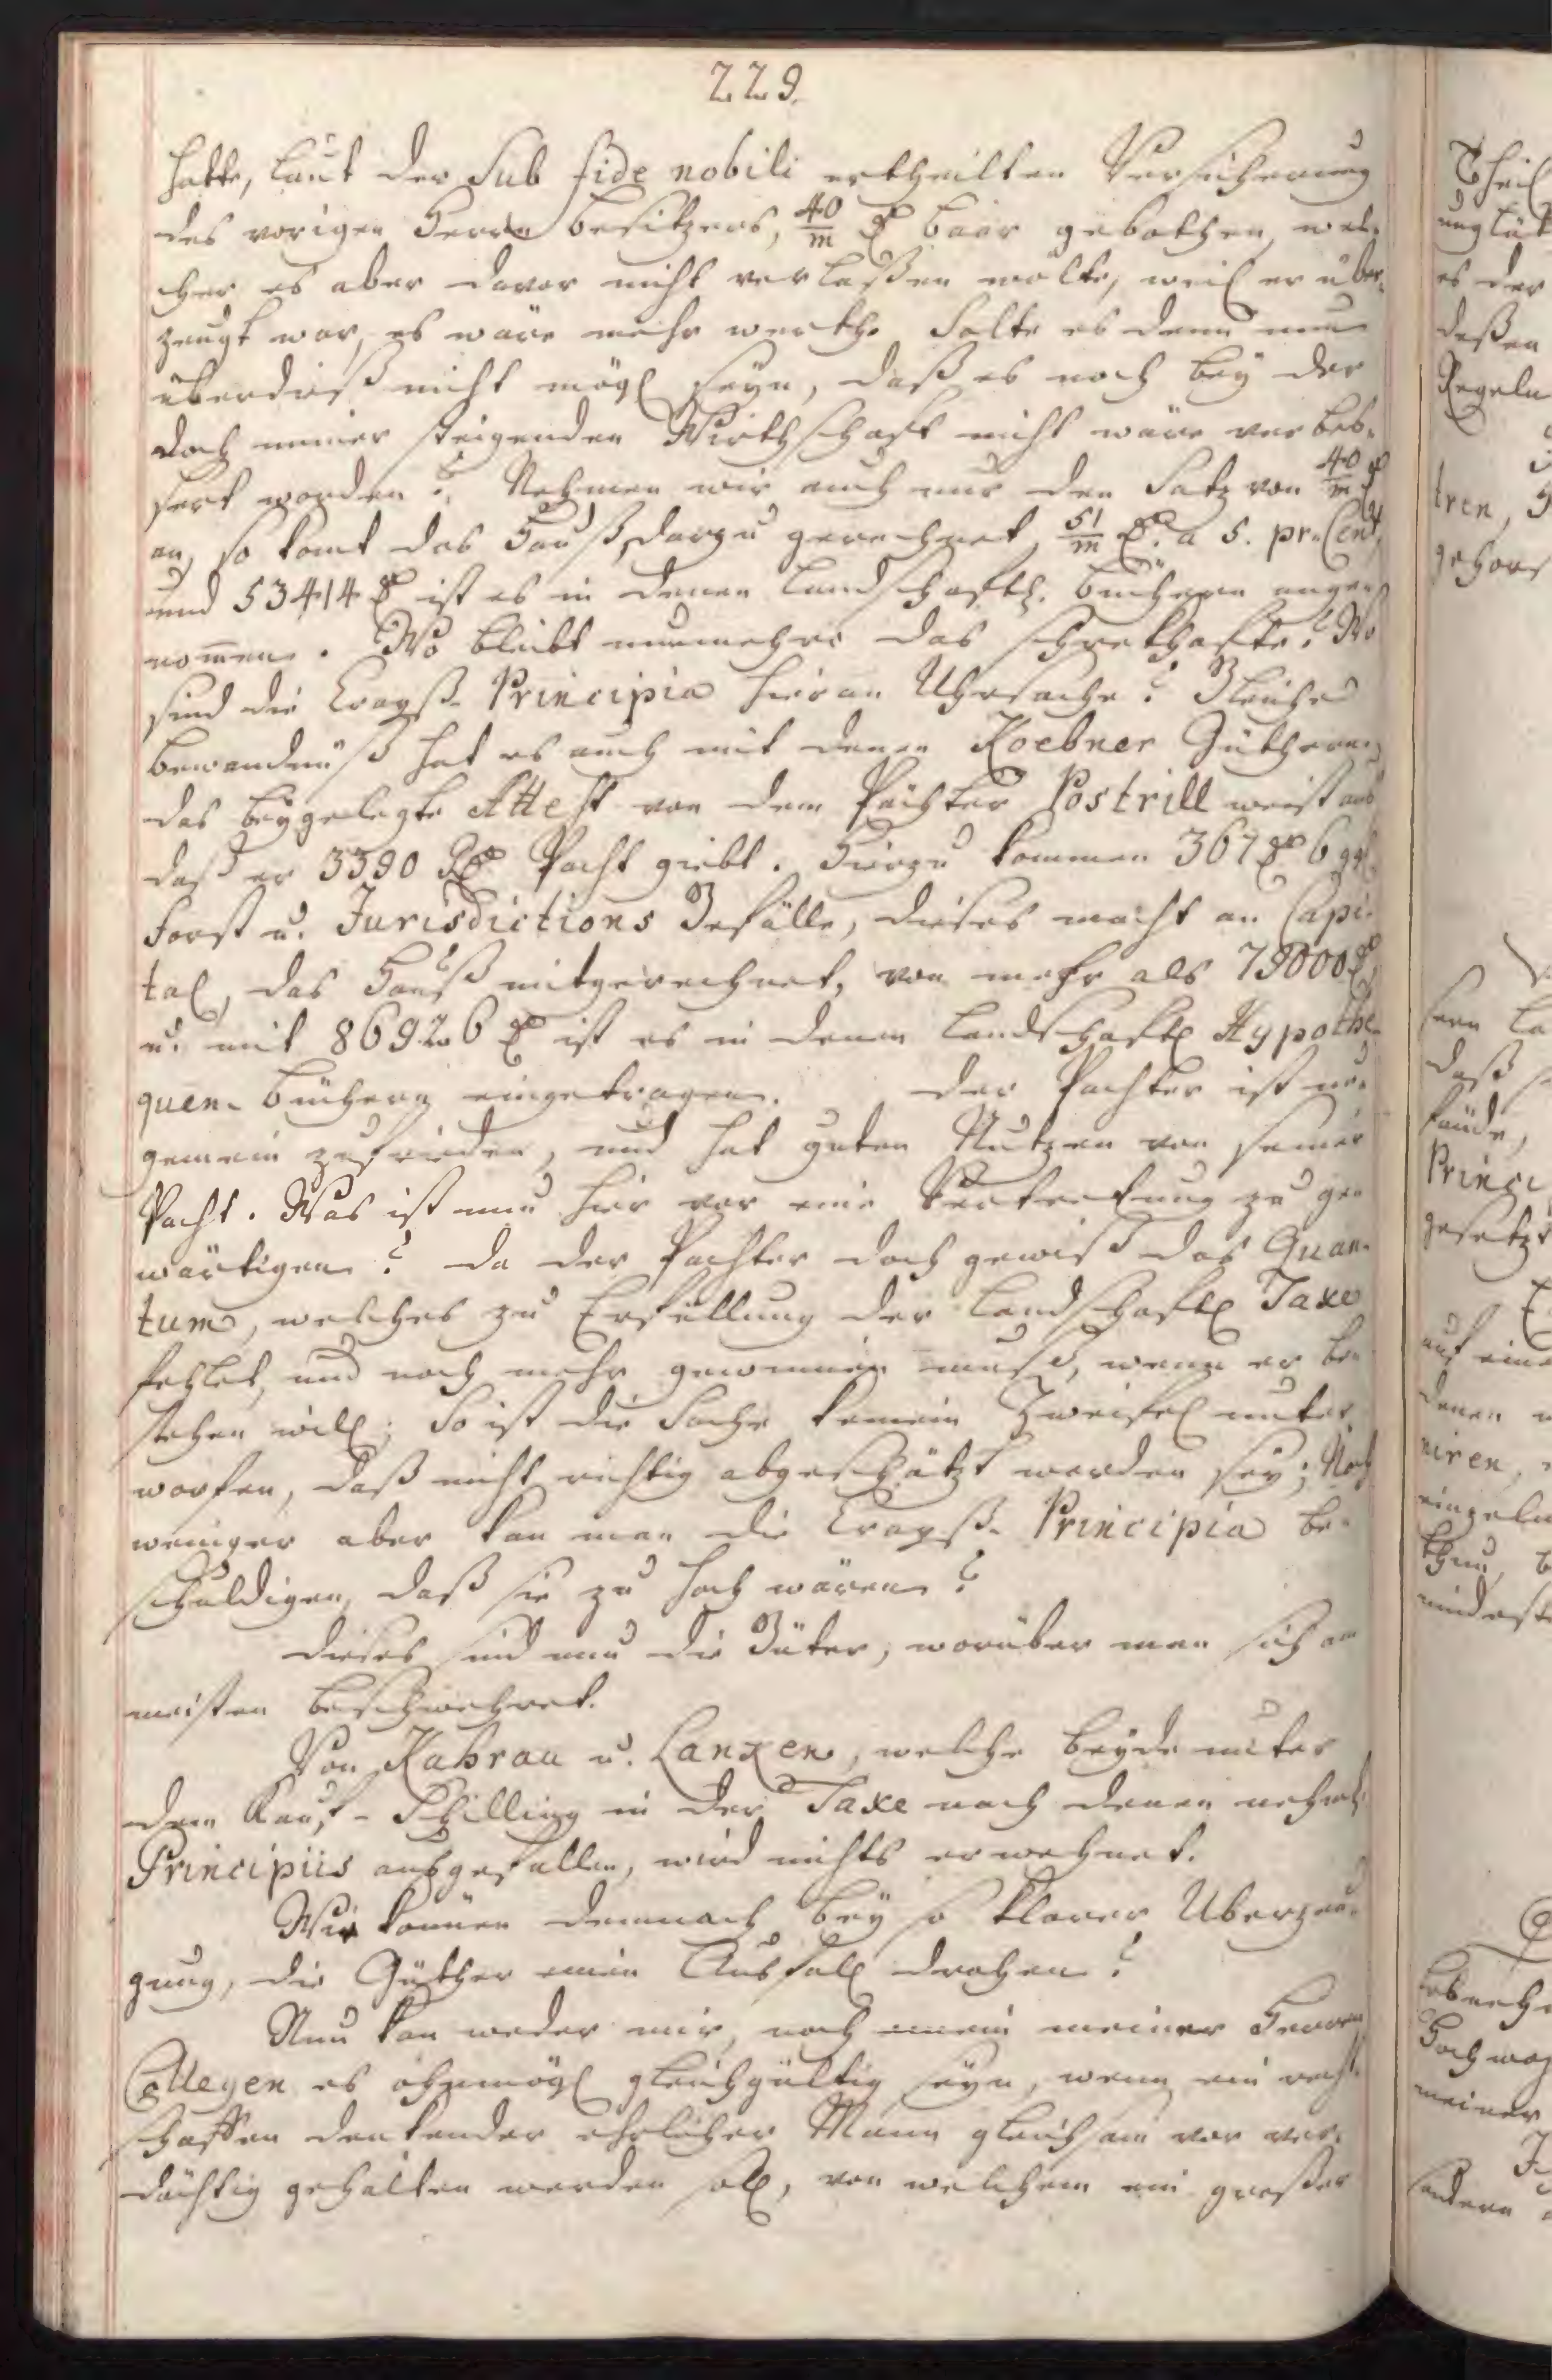 229.
hatte, laut der Sub fide nobili ertheilten Versicherung
des vorigen Herrn besitzers, 40/m rl baar gebothen, wel-
cher es aber davor nicht verlaßen wolte, weil er über-
zeugt war, es wäre mehr werth. Solte es denn nun
überdieß nicht mögl seyn, daß es noch bey der
doch immer steigenden Wirthschaft nicht wäre verbeß-
sert worden? Nehmen wir auch nur den Satz von 40/m rl
an, so komt das Hauß darzu gerechnet, 51/m rl. a 5. pr. Cent,
und 53414 rl ist es in denen Landschaftl. büchern ange-
nom̄en. Wo bleibt nunmehro das schrekhafte? Wo
sind die Crayß-Principia hieran Uhrsache? Gleiche
bewandnüß hat es auch mit denen Koebner Güthern,
das beygelegte Attest von dem Pächter Postrill weist aus
daß er 3390 Rl Pacht giebt. Hierzu kommen 367 rl 6 ggl
Forst u. Jurisdictions Gefälle, dieses macht an Capi-
tal, das Hauß mitgerechnet, von mehr als 79000 rl,
u. mit 86926 rl ist es in denen Landschaftl Hypothe-
quen-büchern eingetragen. Der Pachter ist un-
gemein zufrieden, und hat guten Nutzen von seiner
Pacht. Was ist nun hier vor eine Vertretung zu ge-
wärtigen? da der Pachter doch gewiß das Quan-
tum, welches zu Erfüllung der Landschaftl Taxe
fehlet, und noch mehr gewinnen muß, wenn er be-
stehen will; So ist die Sache keinem Zweifel unter-
worfen, daß nicht richtig abgeschätzt worden sey; Noch
weniger aber kan man die Crayß-Principia be-
schuldigen, daß sie zu hoch wären?
dieses sind nun die Güter, worüber man sich am
meisten beschwehret.
Von Kahrau u. Lanxen, welche beyde unter
dem Kauf-Schilling in der Taxe nach denen nehml.
Principiis ausgefallen, wird nichts erwehnet.
Wie können demnach bey so klarer Überzeu-
gung, die Güther einen Ausfall drohen?
Nun kan weder mir, noch einem meiner Herren
Collegen es ohnmögl gleichgültig seyn, wenn ein recht-
schaffen denkender ehrlicher Mann gleichsam vor ver-
dächtig gehalten werden soll, von welchem ein großer